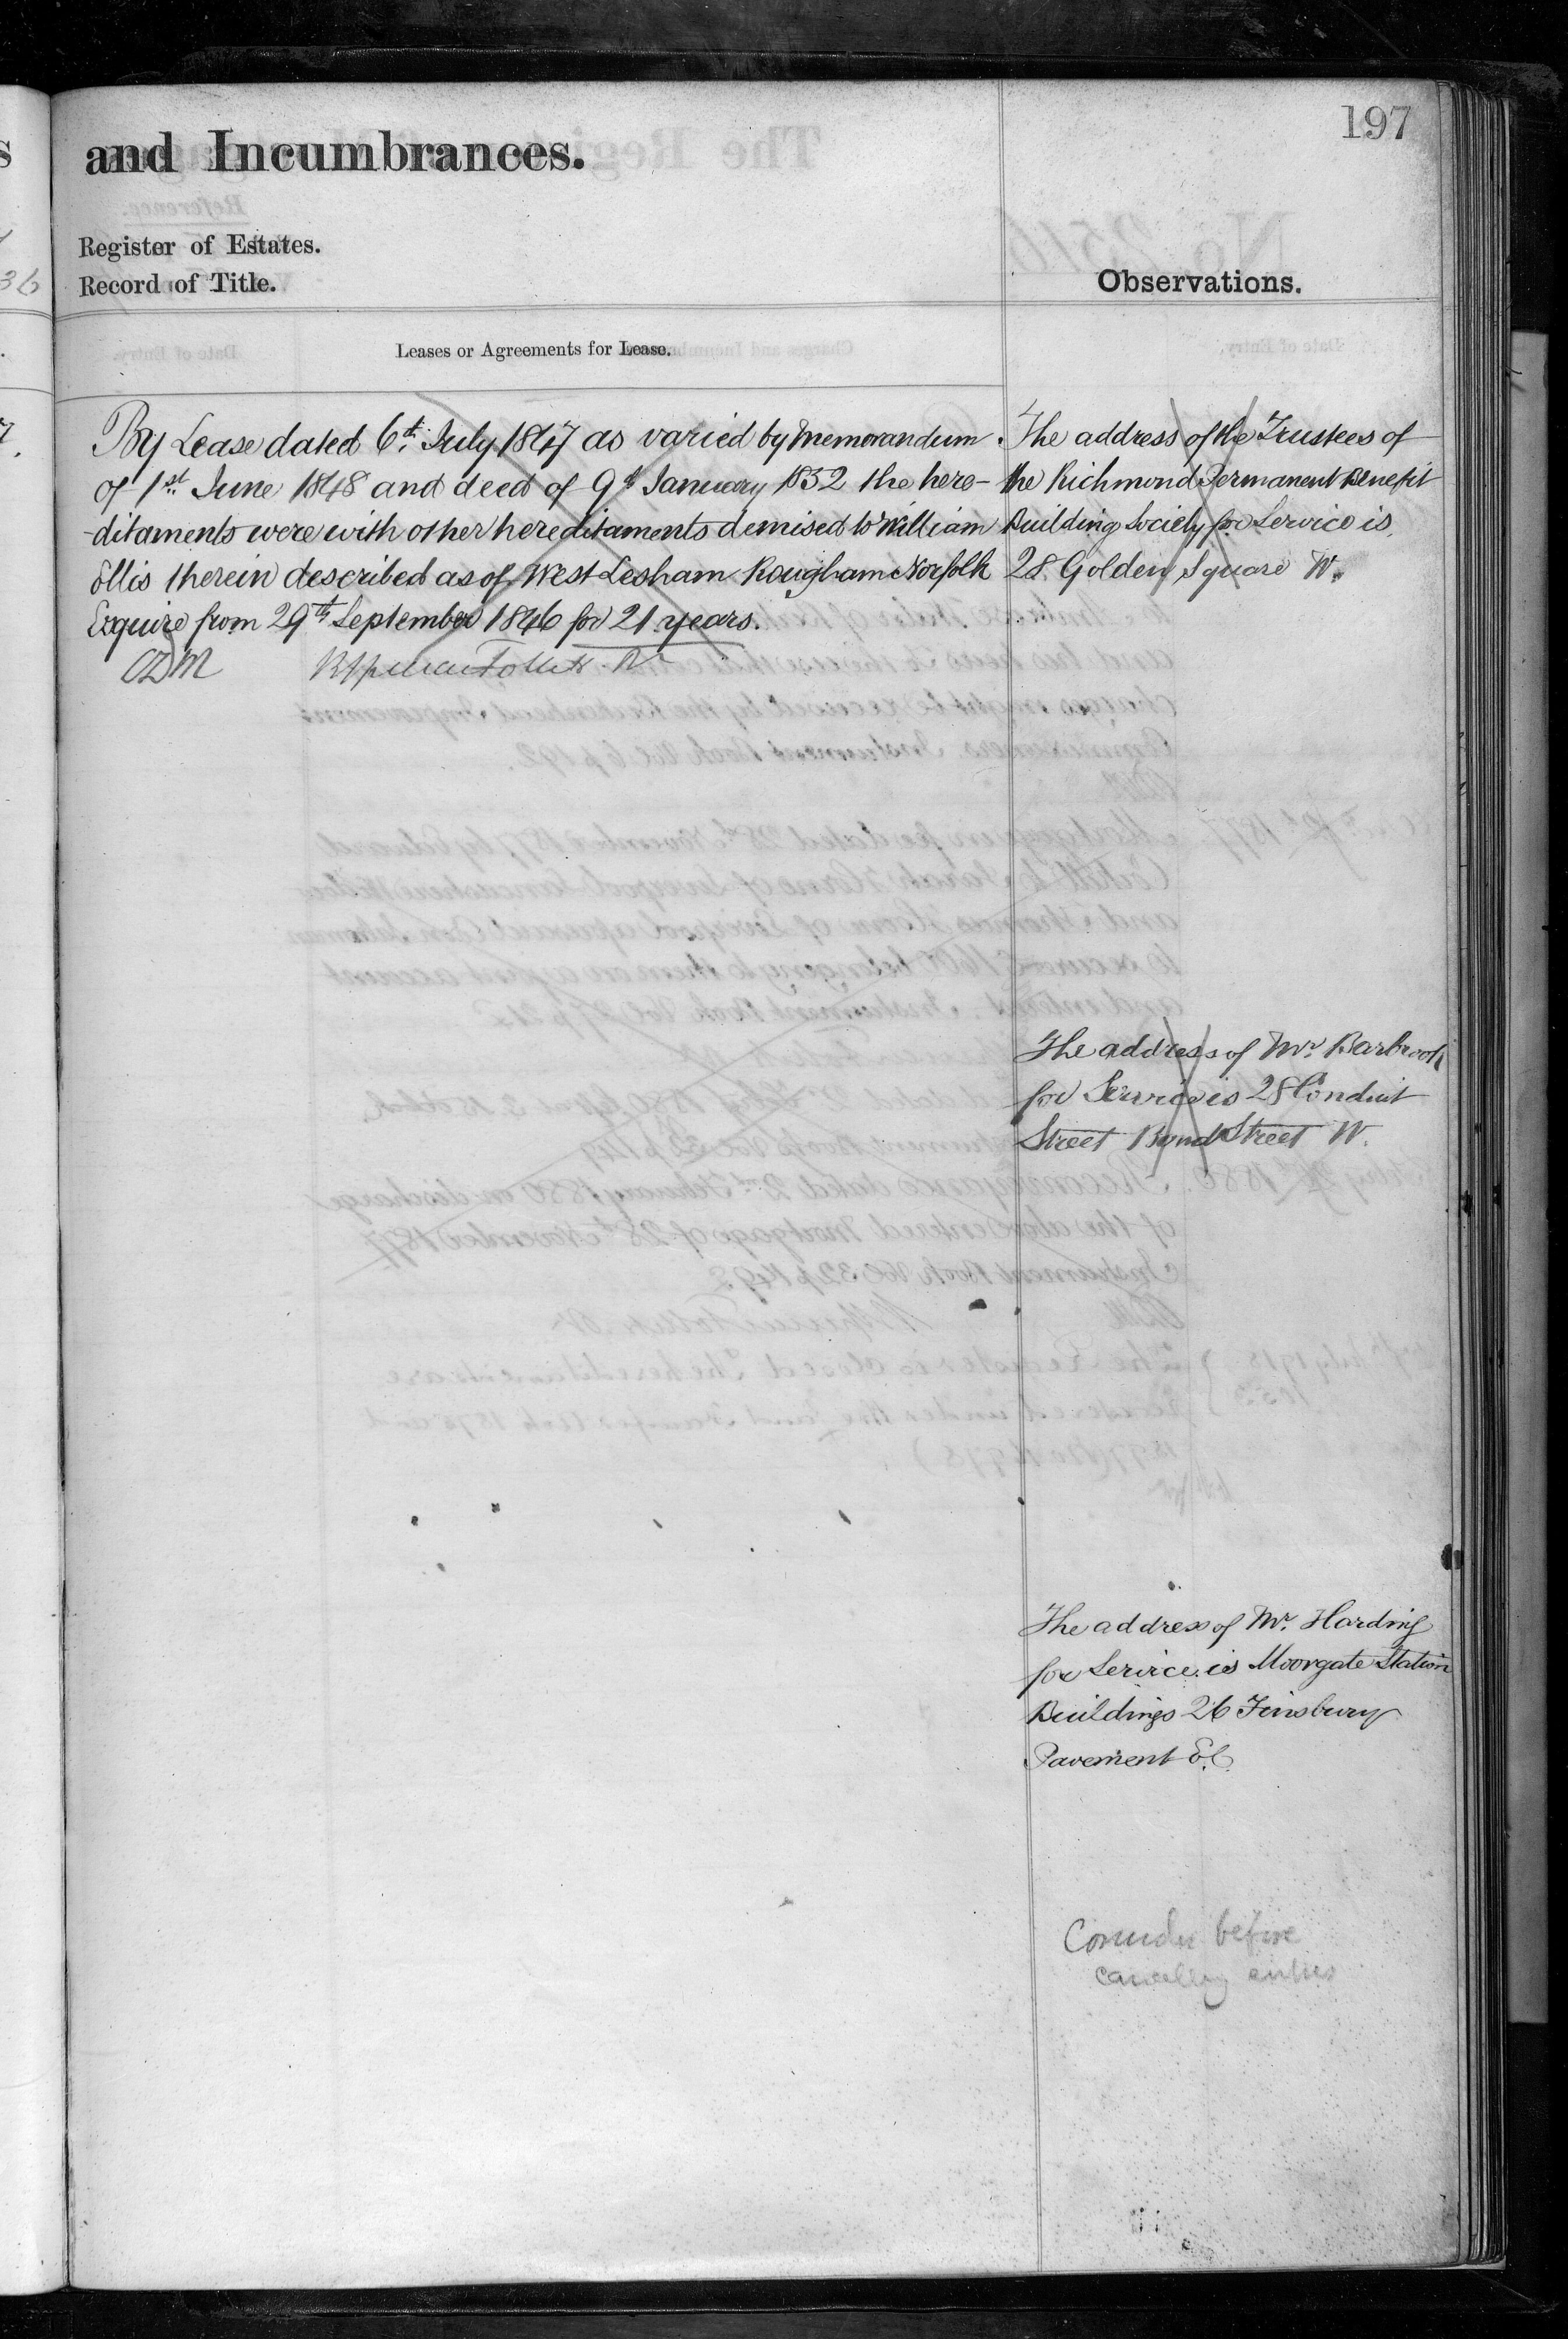 197
and Incumbrances.
Register of Estates.
Record of Title.
Observations.
Leases or Agreements for Lease.
By Lease dated 6th July 1847 as varied by Memorandum
of 1st June 1848 and deed of 9th January 1832 the here-
-ditaments were with other hereditaments demised to William
Ellis therein described as of West Lesham Rougham Norfolk
Esquire from 29th September 1846 for 21 years.
CDM
The address of the Trustees of
the Richmond Permanent Benefit
Building Society for Service is
28 Golden Square W.
The address of Mr. Barbrook
for Service is 28 Conduit
Street Bond Street W.
The address of Mr. Harding
for Service is Moorgate Station
Buildings 26 Finsbury
Pavement E.C.
Consider before
cancelling entries